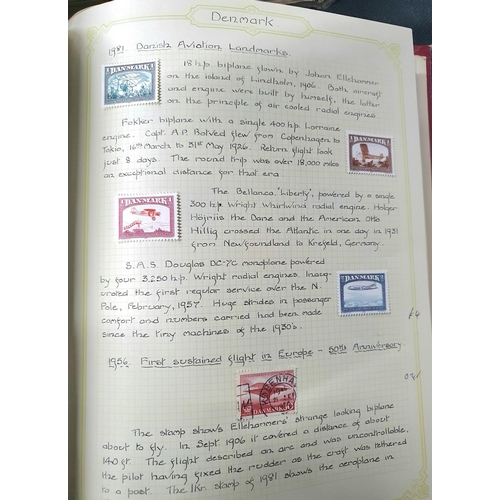 Denmark
1981. Danish Aviation Landmarks.
18 h.p biplane flown by Johan Ellehammer
on the island of Lindholm, 1906. Both aircraft
and engine were built by himself, the latter
on the principle of air cooled radial engines
DANMARK
Fokker biplane with a single 400 h.p Lorraine
engine. Capt. A.P. Botved flew from Copenhagen to
Tokio, 16th March to 31st May 1926. Return flight took
just 8 days. The round trip was over 18,000 miles
an exceptional distance for that era
DANMARK
The Bellanca "Liberty", powered by a single
300 h.p Wright Whirlwind radial engine. Holger
Højriis the Dane and the American Otto
Hillig crossed the Atlantic in one day in 1931
from Newfoundland to Krefeld, Germany.
DANMARK
S.A.S. Douglas DC-7C monoplane powered
by four 3,250 h.p. Wright radial engines. Inaug-
urated the first regular service over the N.
Pole, February, 1957. Huge strides in passenger
comfort and numbers carried had been made
since the tiny machines of the 1930's.
DANMARK
£4
1956. First sustained flight in Europe - 50th Anniversary
KØBENHA
DANMARK
The stamp shows Ellehammers' strange looking biplane
about to fly. In Sept 1906 it covered a distance of about
140 ft. The flight described an arc and was uncontrollable,
the pilot having fixed the rudder as the craft was tethered
to a post. The 1Kr. stamp of 1981 shows the aeroplane in